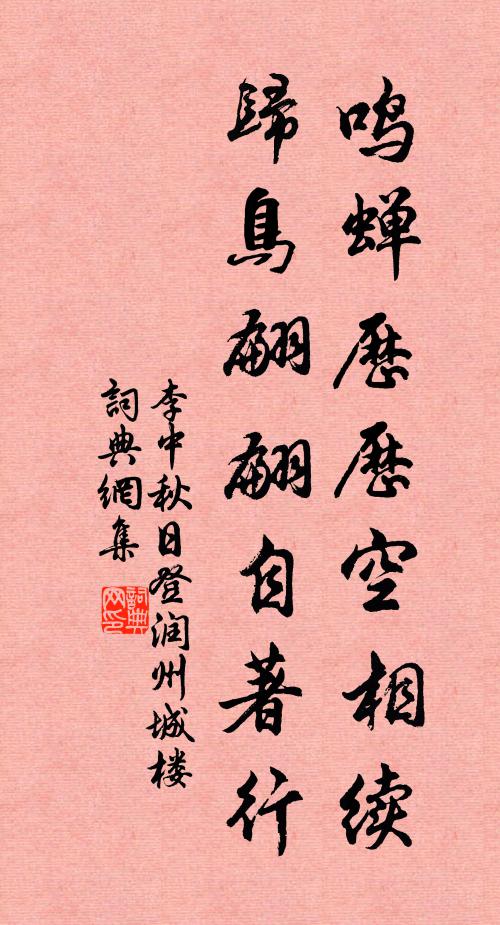 鸣蝉历历空相续
归鸟翩翩自著行
李中秋日登润州城楼
詞典網集
詞典网印